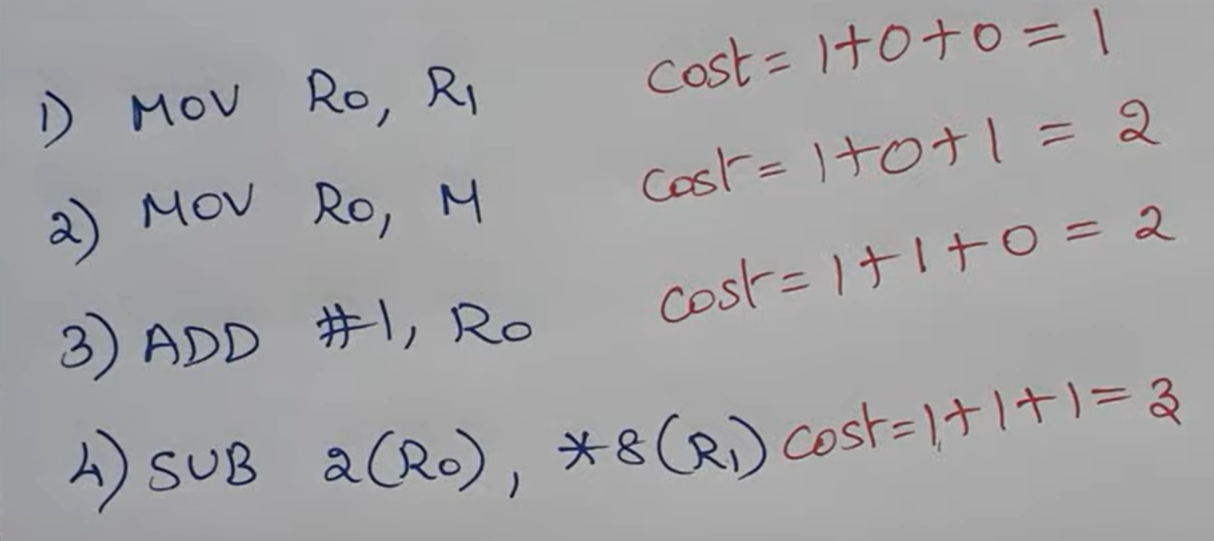 1) MOV R0, R1 cost = 1+0+0 = 1
2) MOV R0, M cost = 1+0+1 = 2
3) ADD #1, R0 cost = 1+1+0 = 2
4) SUB 2(R0), *8(R1) cost = 1+1+1 = 3